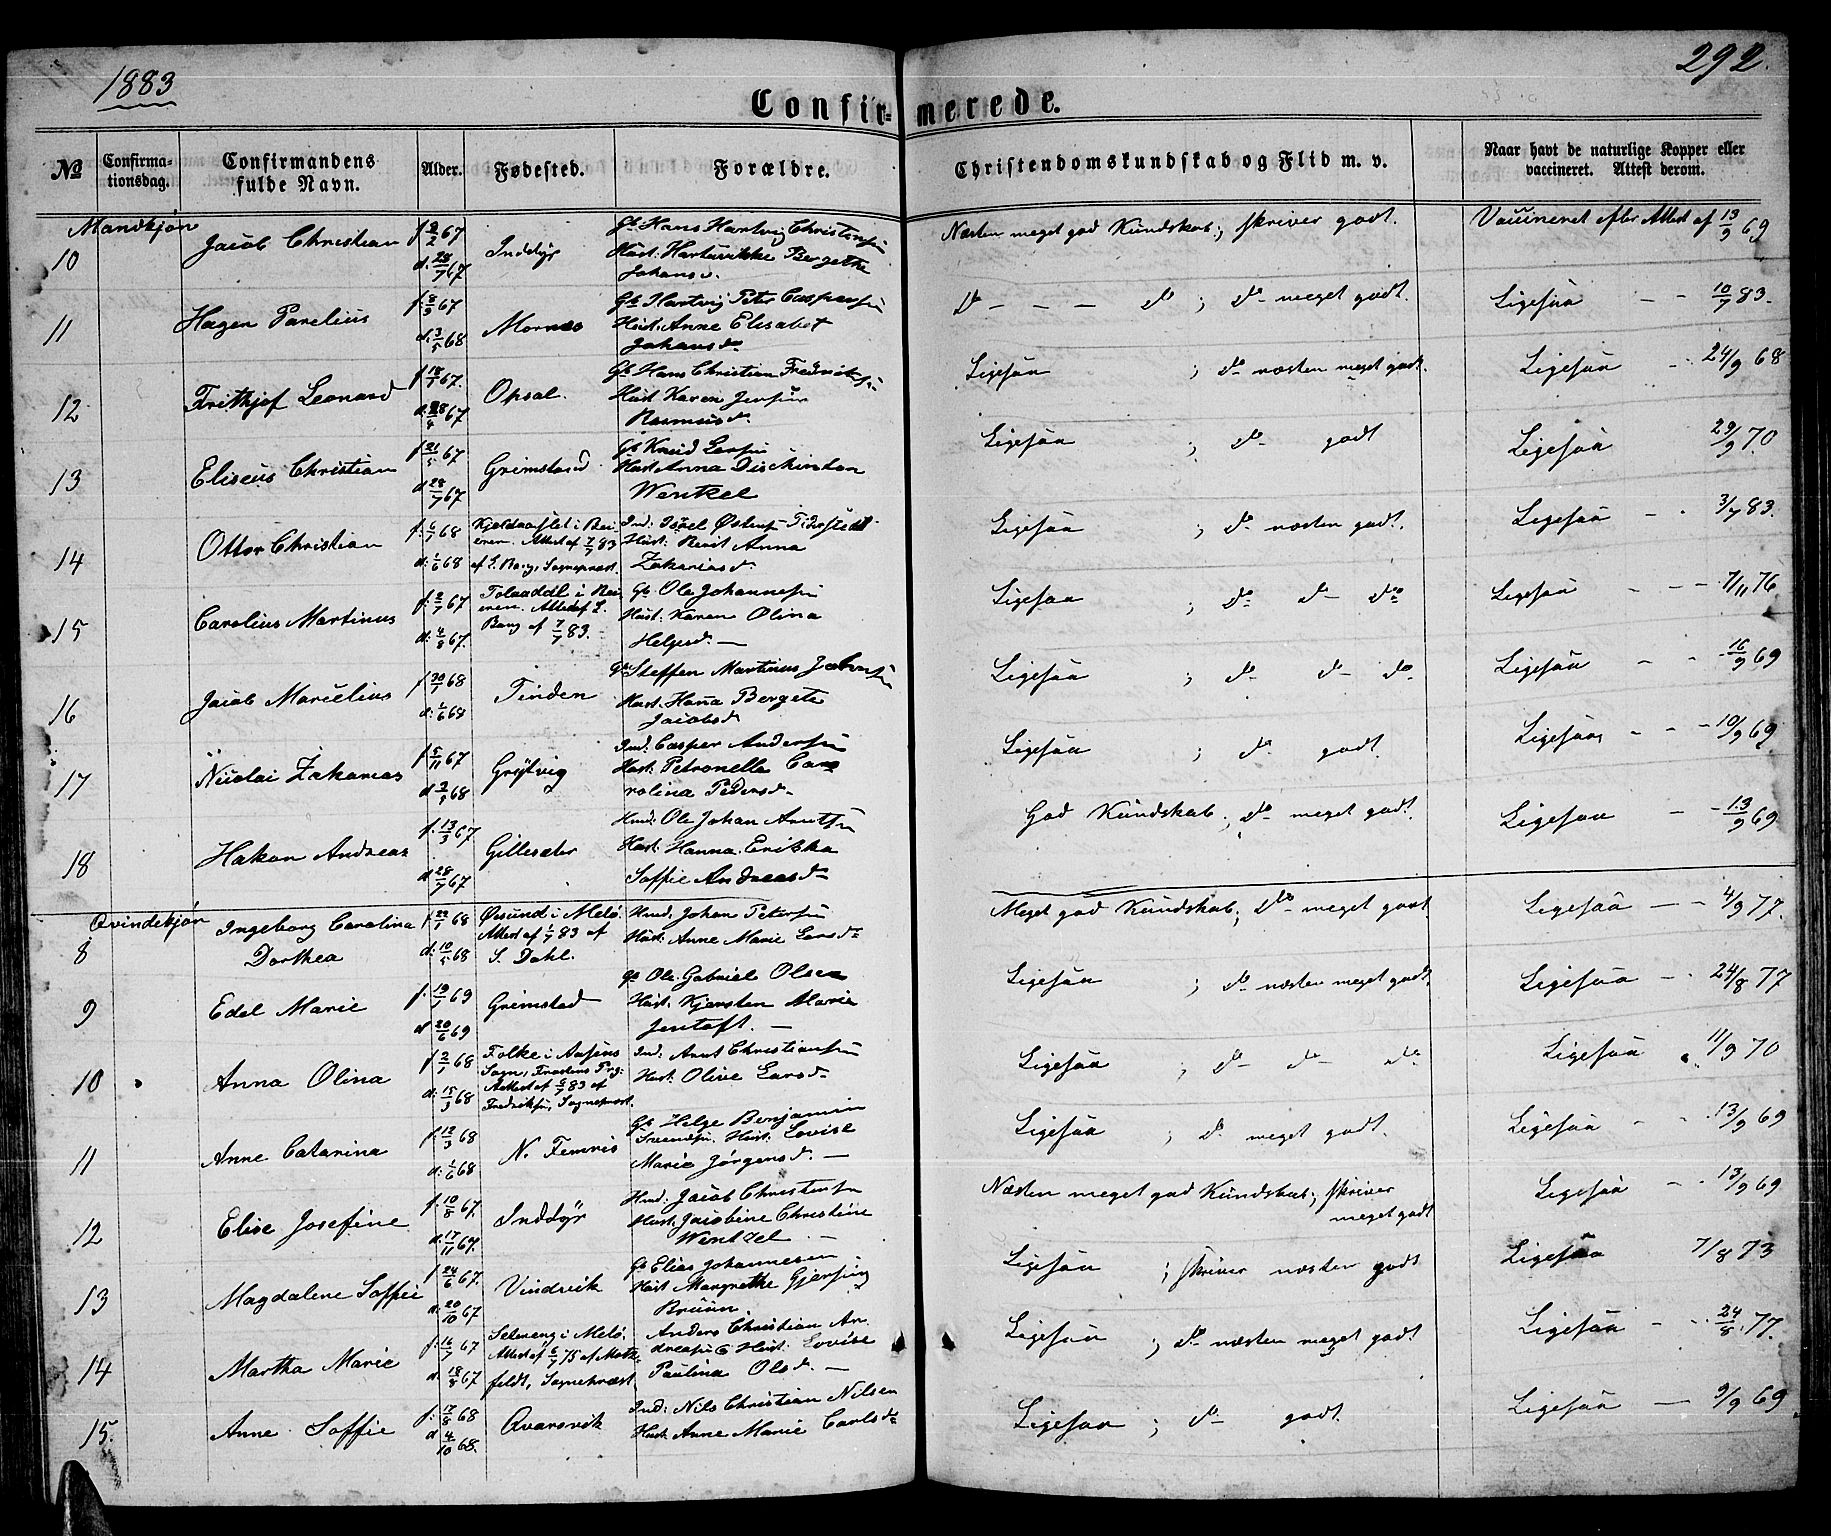 1883
292.
Confirmerede.
No
Confirmationsdag.
Confirmandens fulde Navn.
Alder.
Fødested.
Forældre.
Christendomskundskab og Flid m. v.
Naar havt de naturlige Kopper eller vaccineret. Attest derom.
Mandkjøn
10 Jacob Christian f. 2/2 67 d. 28/7 67 Inddyr Gb. Hans Hartvig Christensen Hust. Hartvikke Bergethe Johansd. Næsten meget god Kundskab; skriver godt. Vaccineret efter Attest af 13/9 69
11 Hagen Parelius f. 8/9 67 d. 3/5 68 Mornes Gb. Hartvig Peter Caspersen Hust. Anne Elisabet Johansd. Do - - - do ; do meget godt. Ligesaa - - 10/7 83.
12 Frithjof Leonard f. 18/1 67. d. 28/4 67 Opsal. Gb. Hans Christian Fredriksen Hust. Karen Jensine Rasmusd. Ligesaa ; do næsten meget godt. Ligesaa - 24/9 68
13 Eliseus Christian f. 21/5 67 d. 28/7 67 Grimstad Gb. Knud Larsen Hust. Anna Wentzel Ligesaa ; do godt Ligesaa 29/9 70.
14 Ottar Christian f. 6/1 68 d. 1/6 68 i Beieren. Attest af 7/7 83 af S. Bang, Sogneprest. Ind. Hust. Berit Anna Zakariasd. Ligesaa ; do næsten godt. Ligesaa - 3/7 83.
15 Carolius Martinus f. 2/7 67 d. 4/8 67. i Beieren. Attest af S. Bang af 7/7 83. Gb. Ole Johannesen Hust. Karen Olina Helgesd. - Ligesaa ; do do do Ligesaa - - 7/11 76
16 Jacob Marselius f. 30/1 68 d. 1/6 68 Tinden Gb. Steffen Martinus Hust. Hana Bergete Jacobsd. Ligesaa ; do do do. Ligesaa - - 16/9 69
17 Nicolai Zakarias f. 5/11 67 d. 2/5 68 Grytvig Ind. Casper Andersen Hust. Petronella Carolina Pedersd. Ligesaa ; do godt. Ligesaa - - 10/9 69
18 Hakon Andreas f. 13/3 67 d. 28/7 67 Gillesæter Hmd. Ole Johan Arntsen Hust. Hanna Erikka Soffie Andreasd. God Kundskab; do meget godt. Ligesaa - 13/9 69
Qvindekjøn
8 Ingeborg Carolina Dorthea f. 22/1 68 d. 10/5 68 Ørsund i Melø. Attest af 1/7 83 af S. Dahl. Hmd. Johan Petersen Hust. Anne Marie Larsd. Meget god Kundskab; do meget godt Ligesaa - - 4/9 77.
9 Edel Marie f. 19/1 69 d. 20/6 69 Grimstad Gb. Ole Gabriel Olsen Hust. Kjersten Marie Jentoft. - Ligesaa ; do næsten meget godt. Ligesaa - 24/8 77
10 Anna Olina f. 2/1 68 d. 15/3 68 Folke i Aasens Sogn, Frostens Prg. Attest af 5/7 83 af Fredriksen, Sogneprest. Ind. Arnt Christiansen Hust. Olive Larsd. Ligesaa ; do do do Ligesaa 11/9 70
11 Anne Catarina f. 12/3 68 d. 1/6 68 N. Femris Gb. Helge Benjamin Svendsen. Hust. Lovise Marie Jørgensd. - Ligesaa ; do meget godt. Ligesaa - 13/9 69
12 Elise Josefine f. 10/8 67. d. 17/11 67. Inddyr Hmd. Jacob Christensen Hust. Jacobine Christine Wentzel - Næsten meget god Kundskab; skriver meget godt Ligesaa - 13/9 69
13 Magdalene Soffie f. 24/6 67. d. 20/10 67 Vindvik Gb. Elias Johannesen Hust. Margrethe Gjersing Bruun Ligesaa ; skriver næsten godt Ligesaa 7/8 73
14 Martha Marie f. 16/7 67 d. 18/8 67 Setvaag i Melø. Attest af 6/7 75 af Motzfeldt, Sogneprest. Anders Christian Andreasen & Hust. Lovise Paulina Olsd. - Ligesaa ; do næsten meget godt Ligesaa - - 24/8 77.
15. Anne Soffie f. 17/8 68 d. 4/10 68. Qvarsvik Ind. Nils Christian Nilsen Hust. Anne Marie Carlsd. Ligesaa ; do godt. Ligesaa - 9/9 69